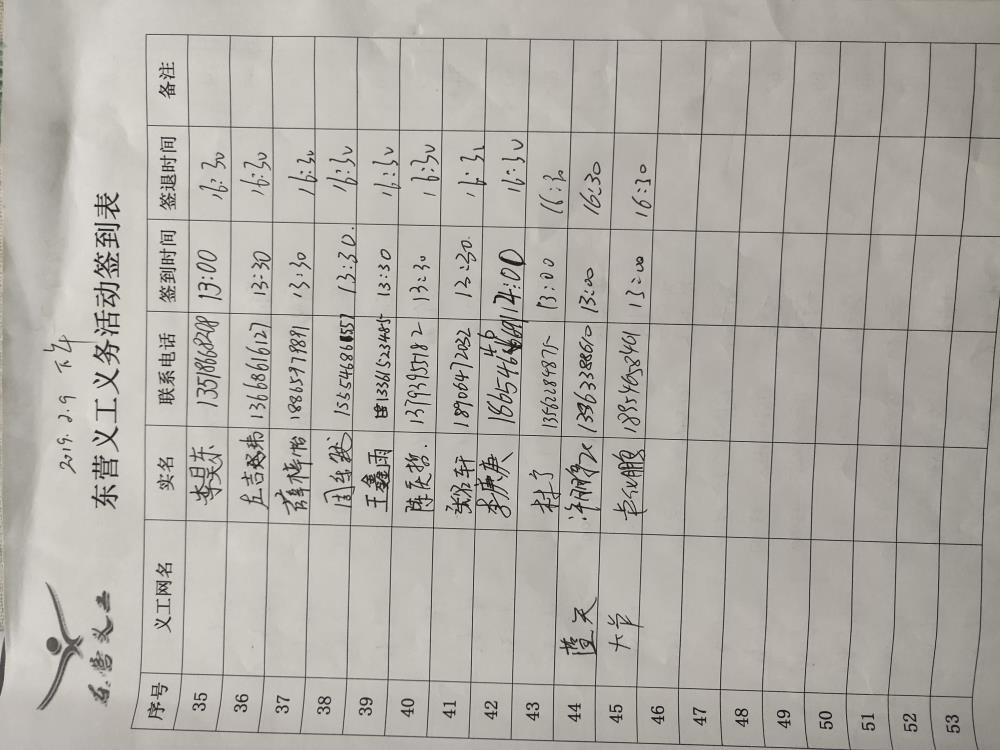 2019.2.9 下午
东营义工
东营义工义务活动签到表
序号 义工网名 实名 联系电话 签到时间 签退时间 备注
35 李昊东 13518668208 13:00 16:30
36 左吉 13668616127 13:30 16:30
37 薛梓怡 18865979891 13:30 16:30
38 周 15554686557 13:30. 16:30
39 王鑫雨 13361523485 13:30 16:30
40 陈天哲. 13793957182 13:30 16:30
41 轩 18906472032 13:30. 16:30
42 李庚庚 14:00 16:30
43 杜宁 13562284875 13:00 16:30
44 蓝天 许鹏飞 13963388610 13:00 16:30
45 大羊 鹏 18956658461 13:00 16:30
46
47
48
49
50
51
52
53